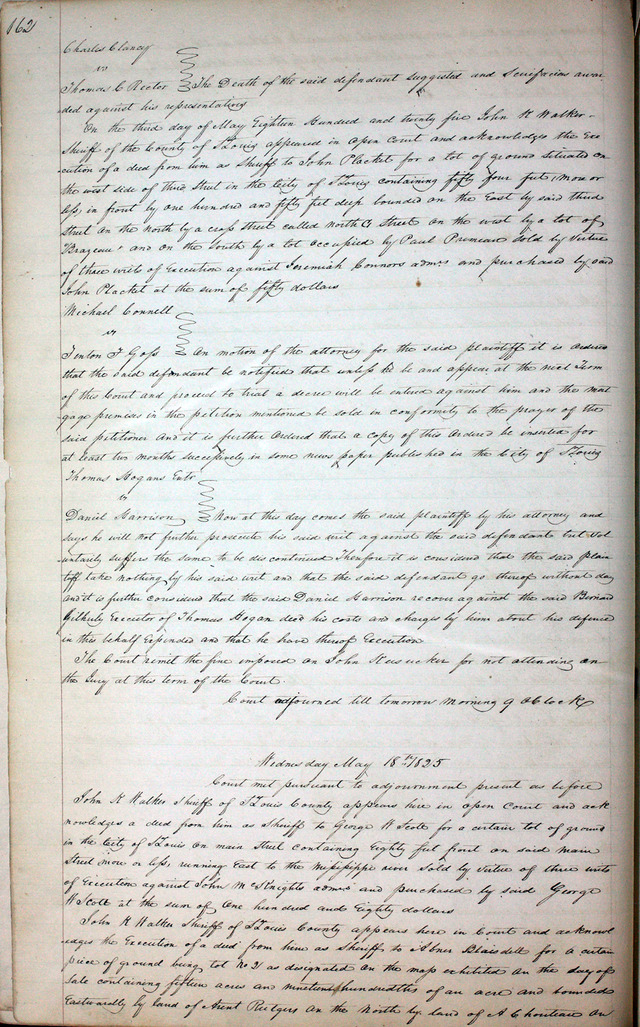 162
Charles Clancy
vs
Thomas C Rector The Death of the said defendant suggested and Scirifacias awar
ded against his representatives
On the third day of May Eighteen Hundred and twenty five John K Walker
Sheriff of the County of St Louis appeared in open Court and acknowledges the Exe
cution of a deed from him as Sheriff to John Placket for a lot of ground situated on
the west side of third Street in the City of St Louis containing fifty four feet, more or
less, in front by one hundred and fifty feet deep bounded on the East by said third
Street on the north by a cross street called north G Street on the west by a lot of
Brazeau and on the South by a lot occupied by Paul Primeau Sold by Virtue
of three writs of Execution against Jeremiah Connors admrs and purchased by said
John Placket at the sum of fifty dollars
Michael Connell
vs
Fenton F Goss On motion of the attorney for the said plaintiff it is ordered
that the said defendant be notified that unless he be and appear at the next Term
of this Court and proceed to trial a decree will be entered against him and the mort
gage premises in the petition mentioned be sold in conformity to the prayer of the
said petitioner And it is further Ordered that a copy of this Order be inserted for
at least two months successively in some news paper published in the City of St Louis
Thomas Hogans Extr
vs
Daniel Harrison Now at this day comes the said plaintiff by his attorney and
says he will not further prosecute his said writ against the said defendant but vol
untarily suffers the same to be discontinued Therefore it is considered that the said plain
tiff take nothing by his said writ and that the said defendant go thereof without day
and it is further considered that the said Daniel Harrison recover against the said Bernard
Gilhuly Executor of Thomas Hogan decd his costs and charges by him about his defence
in this behalf Expended and that he have thereof Execution
The Court remit the fine imposed on John for not attending on
the Jury at this term of the Court
Court adjourned till tomorrow morning 9 OClock
Wednesday May 18th 1825
Court met pursuant to adjournment present as before
John K Walker Sheriff of St Louis County appears here in open Court and ack
nowledges a deed from him as Sheriff to George W Scott for a certain lot of ground
in the City of St Louis on main Street containing Eighty feet front on said main
Street more or less, running East to the Missisippi river Sold by Virtue of three writs
of Execution against John McKnights admrs and purchased by said George
W Scott at the sum of One hundred and Eighty dollars
John K Walker Sheriff of St Louis County appears here in Court and acknowl
edges the Execution of a deed from him as Sheriff to Abner Blaisdell for a certain
piece of ground being lot No 2 as designated on the map exhibited on the day of
Sale containing fifteen acres and nineteen hundredths of an acre and bounded
Eastwardly by land of Arent Rutgers on the North by land of A Chouteau on